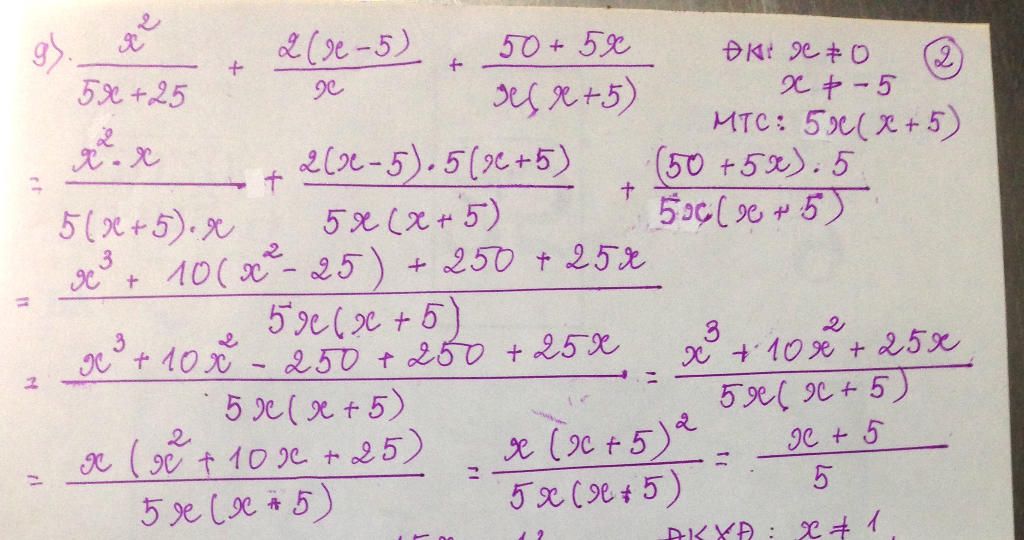 g). x²/(5x+25) + 2(x-5)/x + (50+5x)/(x(x+5)) ĐK: x ≠ 0 ②
x ≠ -5
MTC: 5x(x+5)
= (x²·x)/(5(x+5)·x) + (2(x-5)·5(x+5))/(5x(x+5)) + ((50+5x)·5)/(5x(x+5))
= (x³ + 10(x²-25) + 250 + 25x)/(5x(x+5))
= (x³ + 10x² - 250 + 250 + 25x)/(5x(x+5)) = (x³ + 10x² + 25x)/(5x(x+5))
= (x(x² + 10x + 25))/(5x(x+5)) = (x(x+5)²)/(5x(x+5)) = (x+5)/5
ĐKXĐ: x ≠ 1